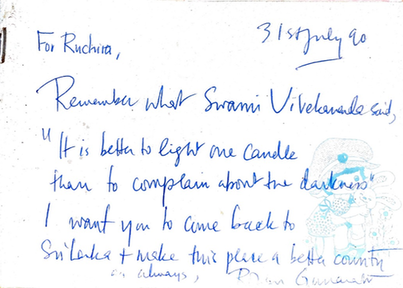 31st July 90
For Ruchira,
Remember what Swami Vivekananda said,
"It is better to light one candle
than to complain about the darkness"
I want you to come back to
Sri Lanka + make this place a better country
as always,